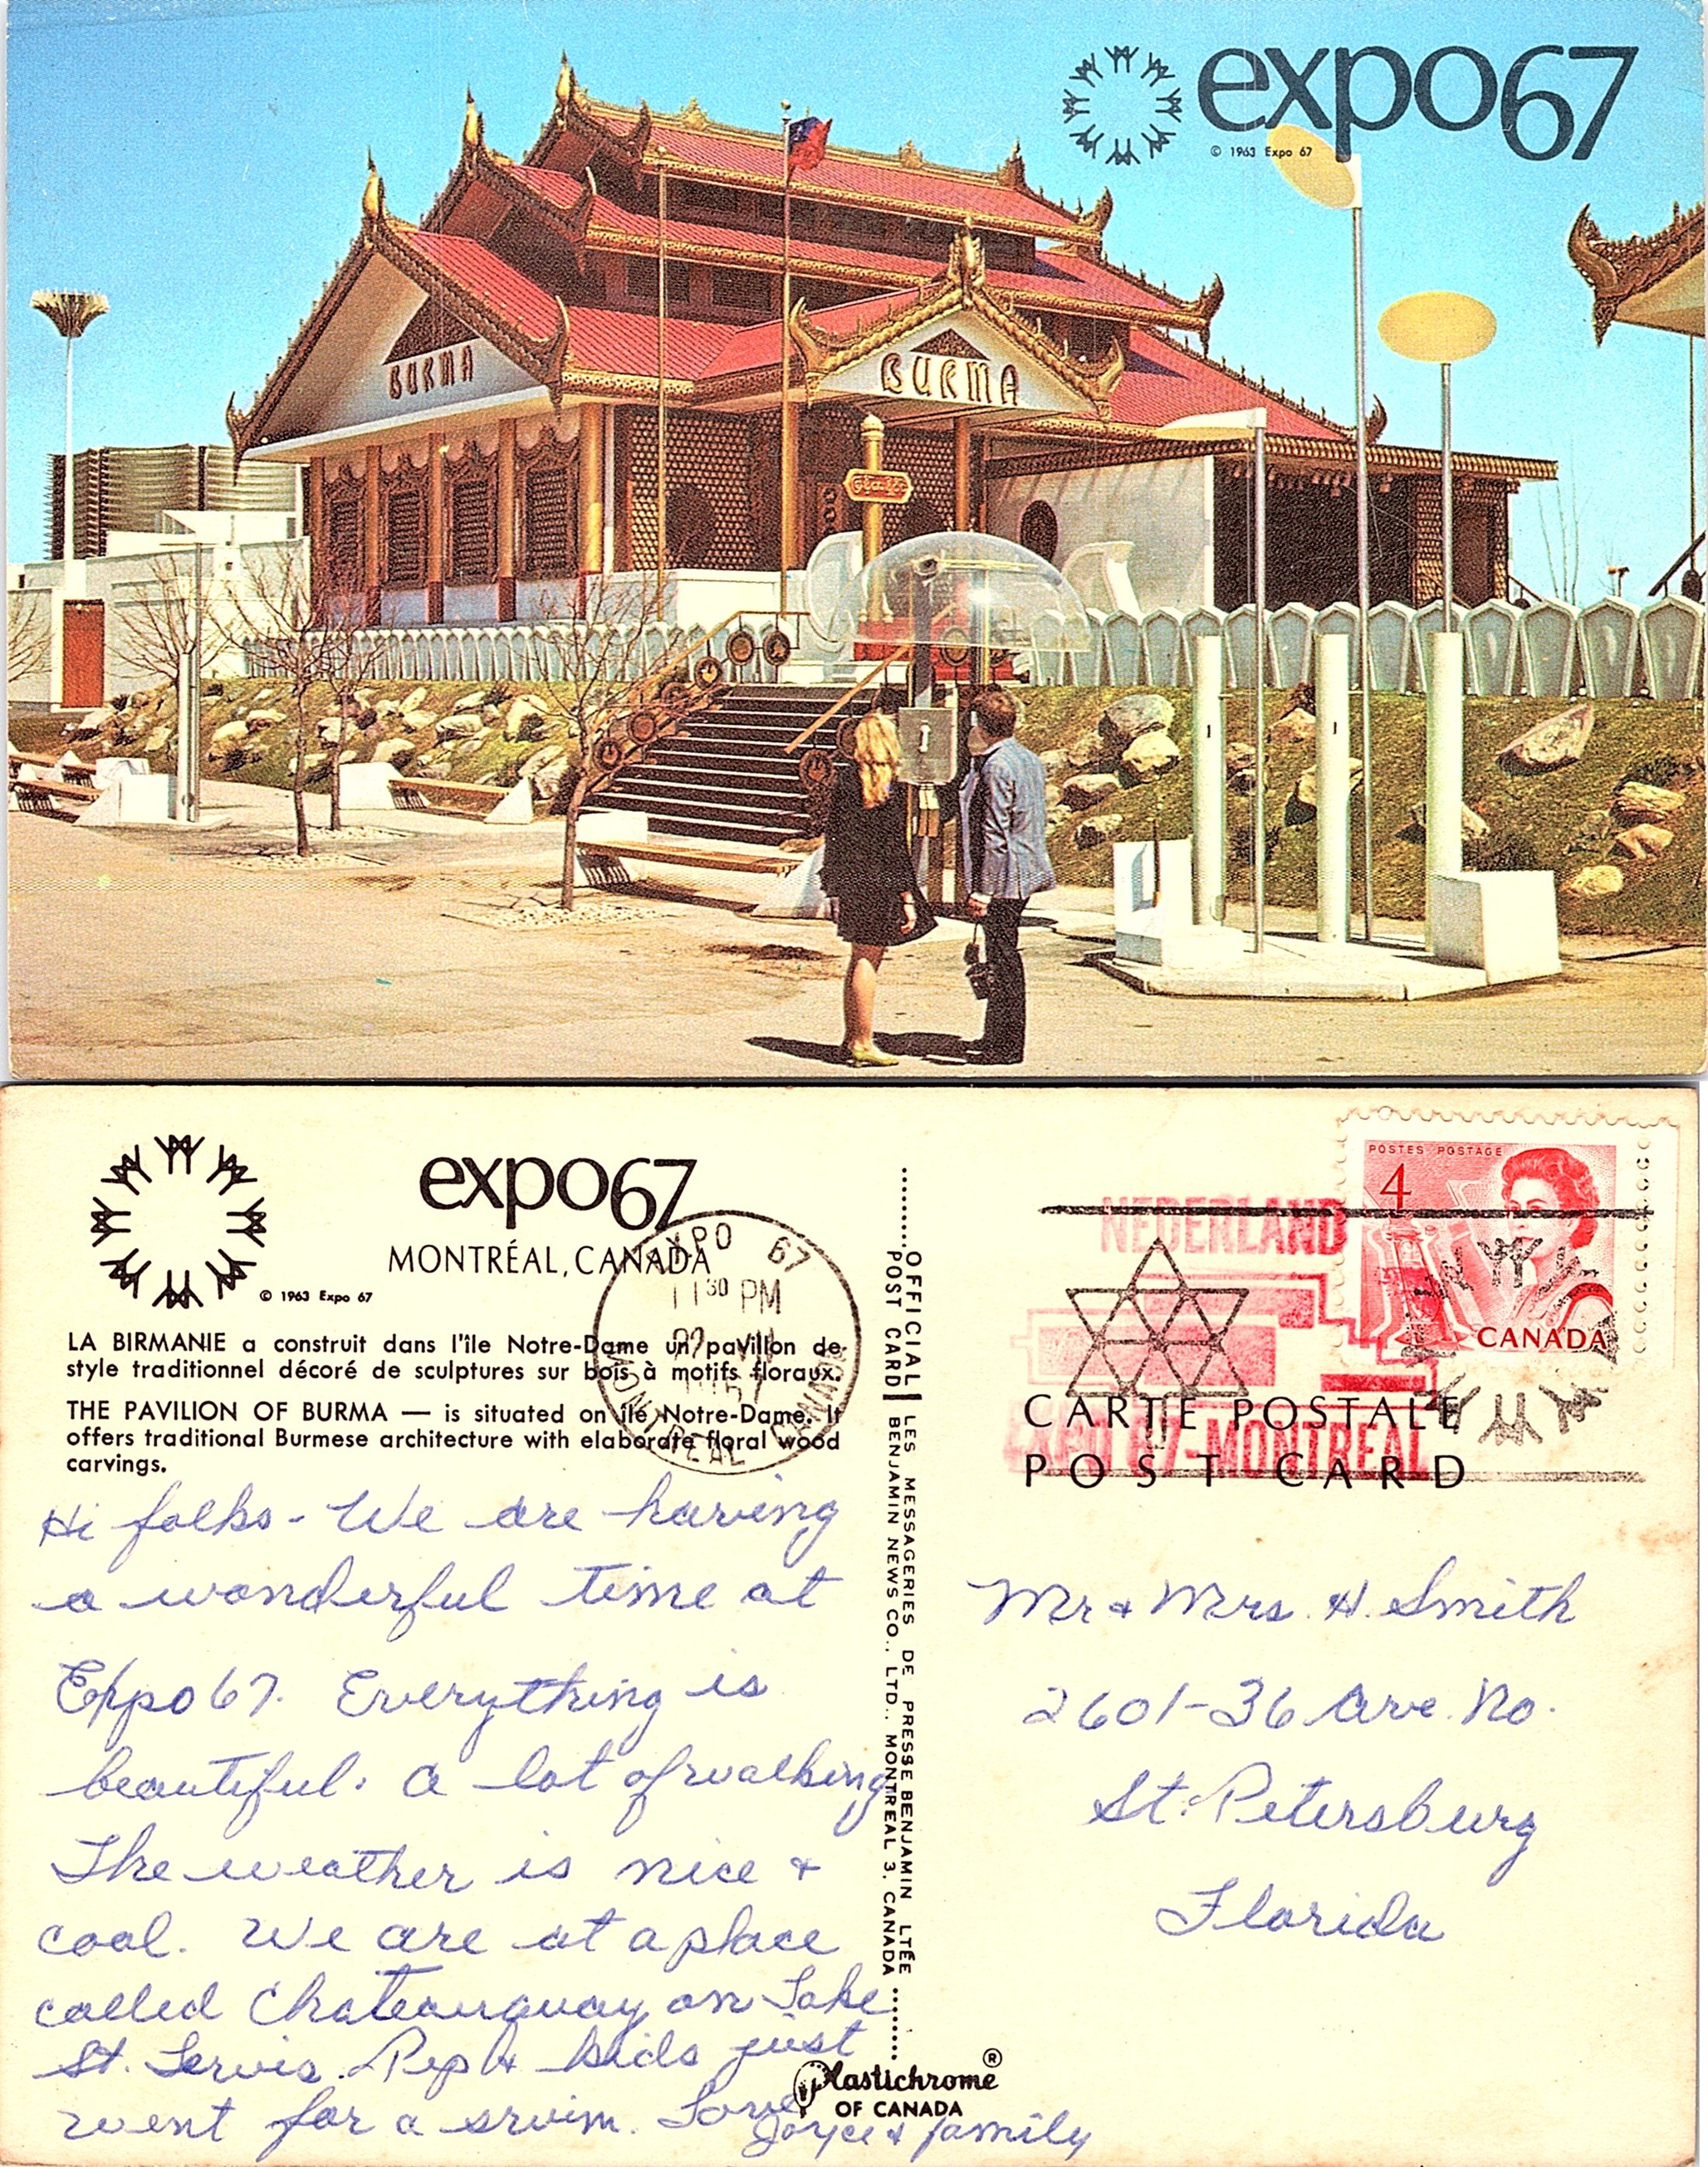 expo67
© 1963 Expo 67
BURMA
BURMA
expo67
MONTRÉAL, CANADA
© 1963 Expo 67
LA BIRMANIE a construit dans l'île Notre-Dame un pavillon de
style traditionnel décoré de sculptures sur bois à motifs floraux.
THE PAVILION OF BURMA — is situated on île Notre-Dame. It
offers traditional Burmese architecture with elaborate floral wood
carvings.
EXPO 67
11 30 PM
MONTREAL CANADA
Hi folks - We are having
a wonderful time at
Expo 67. Everything is
beautiful. A lot of walking
The weather is nice +
cool. We are at a place
called Chateauguay on Lake
St. Lewis. Pep & kids just
went for a swim. Love
Joyce & family
OFFICIAL POST CARD
LES MESSAGERIES DE PRESSE BENJAMIN LTÉE
BENJAMIN NEWS CO., LTD., MONTREAL 3, CANADA
Plastichrome ®
OF CANADA
POSTES POSTAGE
4
CANADA
NEDERLAND
EXPO 67-MONTREAL
CARTE POSTALE
POST CARD
Mr & Mrs. H. Smith
2601-36 Ave. No.
St. Petersburg
Florida